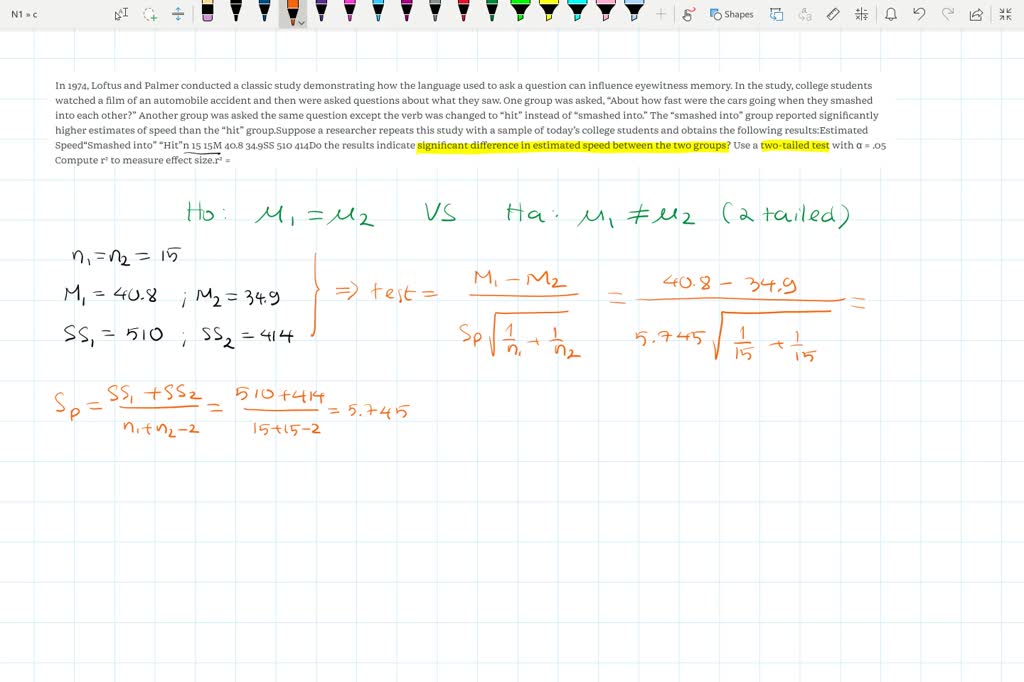 N1 » c
Shapes
In 1974, Loftus and Palmer conducted a classic study demonstrating how the language used to ask a question can influence eyewitness memory. In the study, college students
watched a film of an automobile accident and then were asked questions about what they saw. One group was asked, “About how fast were the cars going when they smashed
into each other?” Another group was asked the same question except the verb was changed to “hit” instead of “smashed into.” The “smashed into” group reported significantly
higher estimates of speed than the “hit” group.Suppose a researcher repeats this study with a sample of today’s college students and obtains the following results:Estimated
Speed“Smashed into” “Hit”n 15 15M 40.8 34.9SS 510 414Do the results indicate significant difference in estimated speed between the two groups? Use a two-tailed test with α = .05
Compute r² to measure effect size.r² =
Ho: μ₁ = μ₂ VS Ha: μ₁ ≠ μ₂ (2 tailed)
n₁ = n₂ = 15
M₁ = 40.8 ; M₂ = 34.9
SS₁ = 510 ; SS₂ = 414
⇒ test = (M₁ − M₂) / (Sp √(1/n₁ + 1/n₂)) = (40.8 − 34.9) / (5.745 √(1/15 + 1/15)) =
Sp = (SS₁ + SS₂) / (n₁ + n₂ − 2) = (510 + 414) / (15 + 15 − 2) = 5.745